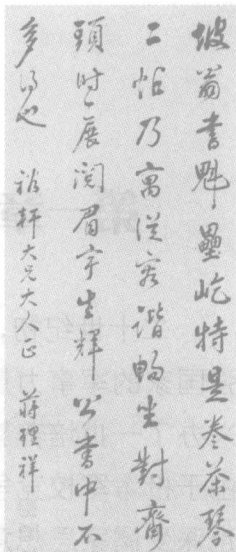 坡翁書魁壘屹特是卷茶琴
二帖乃寓從容諧暢坐對齋
頭時一展閱眉宇生輝公書中不
多得也 裕軒大兄大人正 蔣理祥